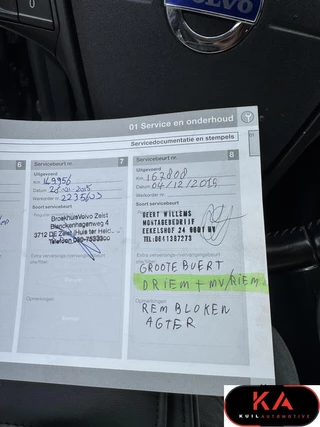 VOLVO
01 Service en onderhoud
Servicedocumentatie en stempels
6
Servicebeurt nr. 7
Uitgevoerd
Km 149956
Datum
Werkorder nr. 2235603
Soort servicebeurt
BroekhuisVolvo Zeist
Blanckenhagenweg 4
3712 DE Zeist (Huis ter Heide)
Telefoon
Servicebeurt nr. 8
Uitgevoerd
Km 162808
Datum 04/12/2015
Werkorder nr.
Soort servicebeurt
GEERT WILLEMS
MONTAGEBEDRIJF
EEKELSHOF 24
TEL:0641387273
GROOTE BUERT
DRIEM + MV/RIEM
Opmerkingen
REMBLOKEN
AGTER
Opmerkingen
KA
KUILAUTOMOTIVE